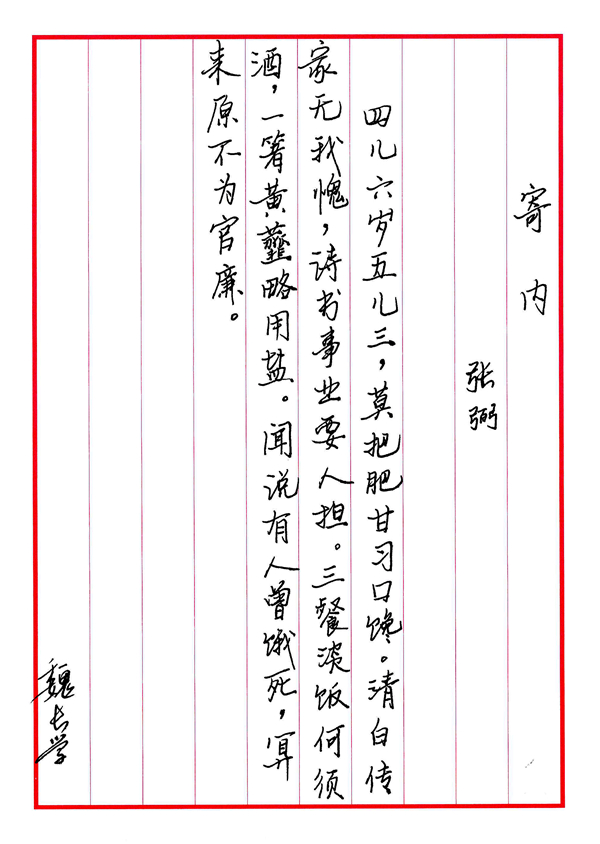 寄内
张弼
四儿六岁五儿三，莫把肥甘习口馋。清白传
家无我愧，诗书事业要人担。三餐淡饭何须
酒，一箸黄虀略用盐。闻说有人曾饿死，算
来原不为官廉。
魏长学